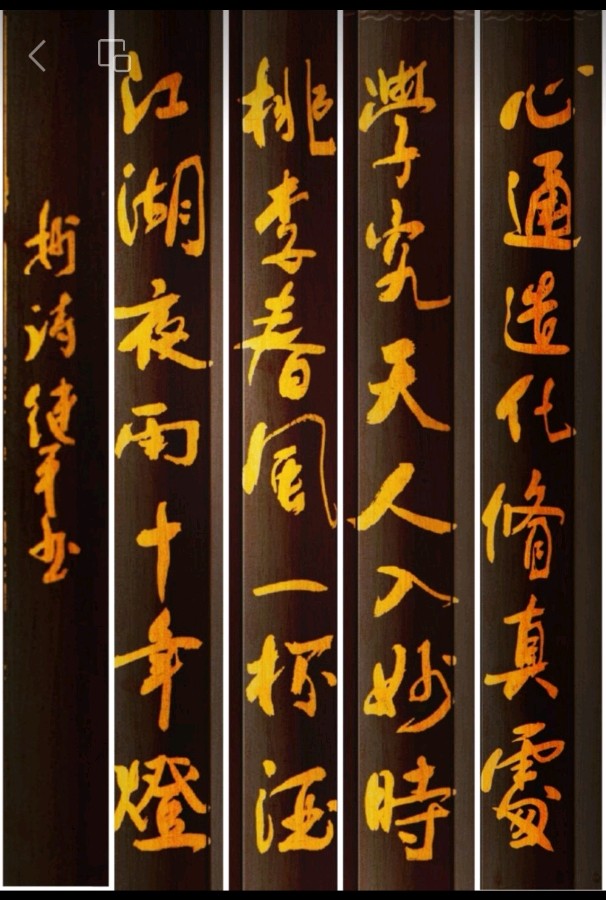 心通造化脩真處
學究天人入妙時
桃李春風一杯酒
江湖夜雨十年燈